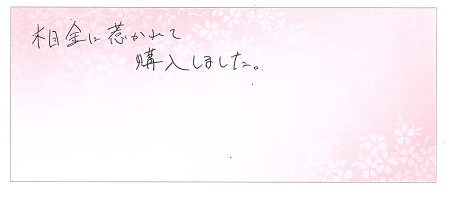 相金に惹かれて
購入しました。